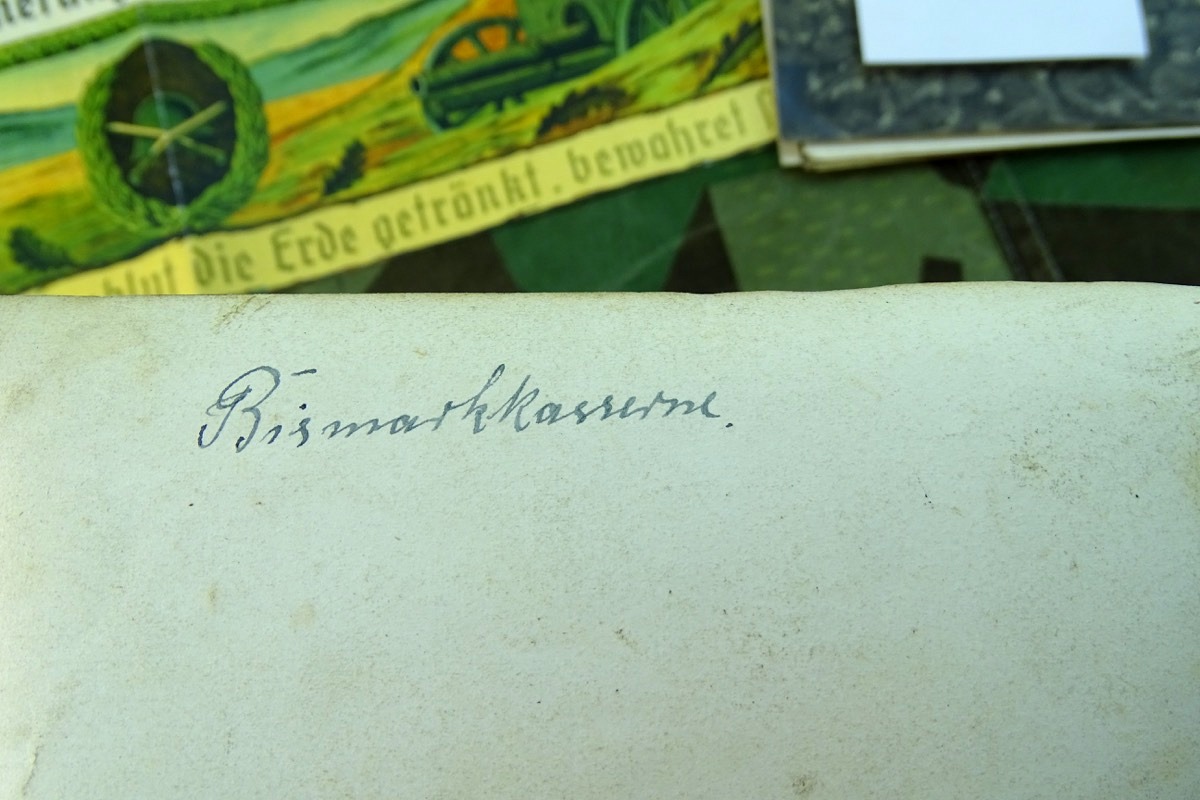 blut die Erde getränkt. bewahret
Bismarkkasserne.